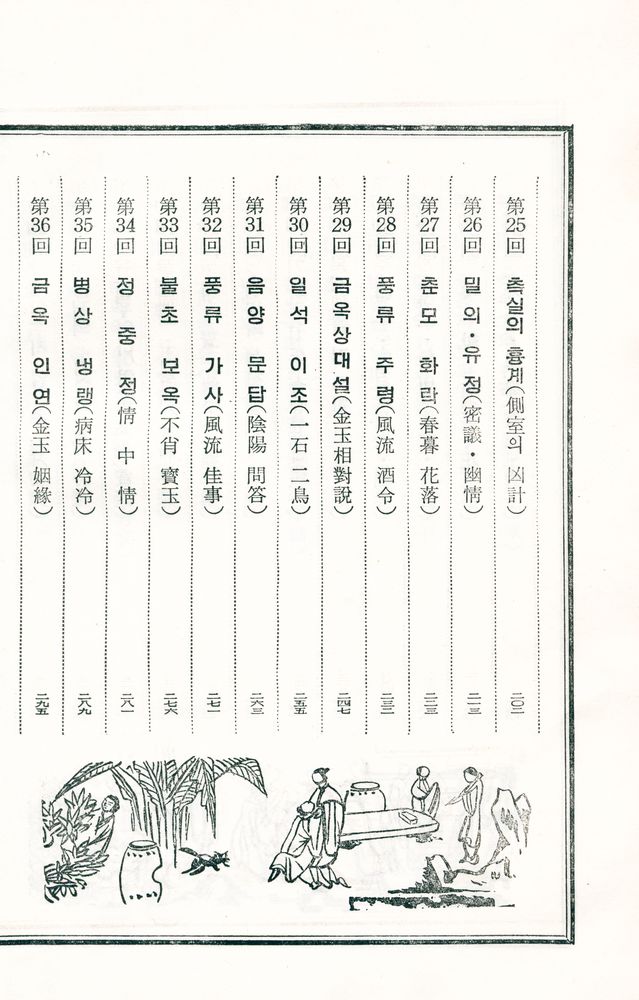 第25回 측실의 흉계(側室의 凶計) 二〇二
第26回 밀의·유정(密議·幽情) 二一三
第27回 춘모 화락(春暮 花落) 二二三
第28回 풍류 주령(風流 酒令) 二三二
第29回 금옥상대설(金玉相對說) 二四七
第30回 일석 이조(一石 二鳥) 二五五
第31回 음양 문답(陰陽 問答) 二六三
第32回 풍류 가사(風流 佳事) 二七一
第33回 불초 보옥(不肖 寶玉) 二七六
第34回 정 중 정(情 中 情) 二八一
第35回 병상 냉랭(病床 冷冷) 二八九
第36回 금옥 인연(金玉 姻緣) 二九五